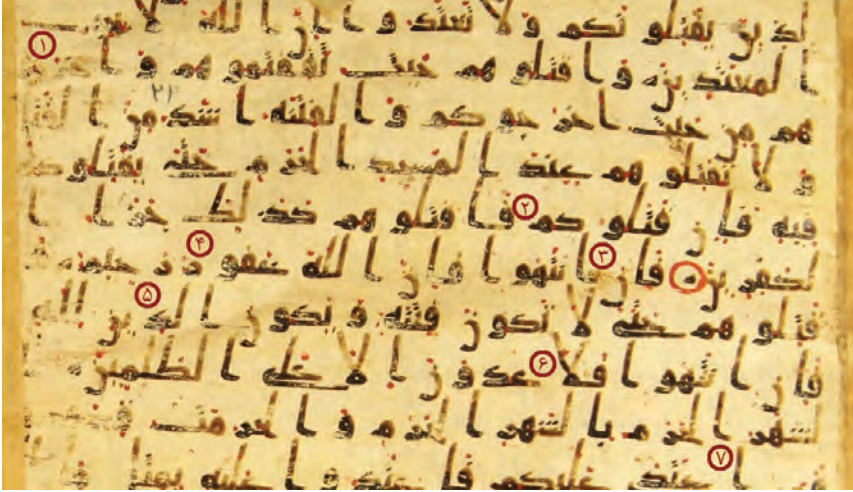 لذين يقتلونكم ولا تعتدوا ان الله لا يحب ۱
المعتدين واقتلوهم حيث ثقفتموهم واخرجو
هم من حيث اخرجوكم والفتنه اشد من القتل
ولا تقتلوهم عند المسجد الحرم حتى يقتلوكم
فيه فان قتلوكم ۲ فاقتلوهم كذلك جزا ا
لكفرين فان ۳ انتهوا فان الله غفور ۴ رحيم و
قتلوهم حتى لا تكون فتنه ويكون الدين ۵ لله
فان انتهوا فلا ۶ عدون الا على الظلمين ا
لشهر الحرم بالشهر الحرم والحرمت
اعتدى ۷ عليكم فاعتدوا عليه بمثل